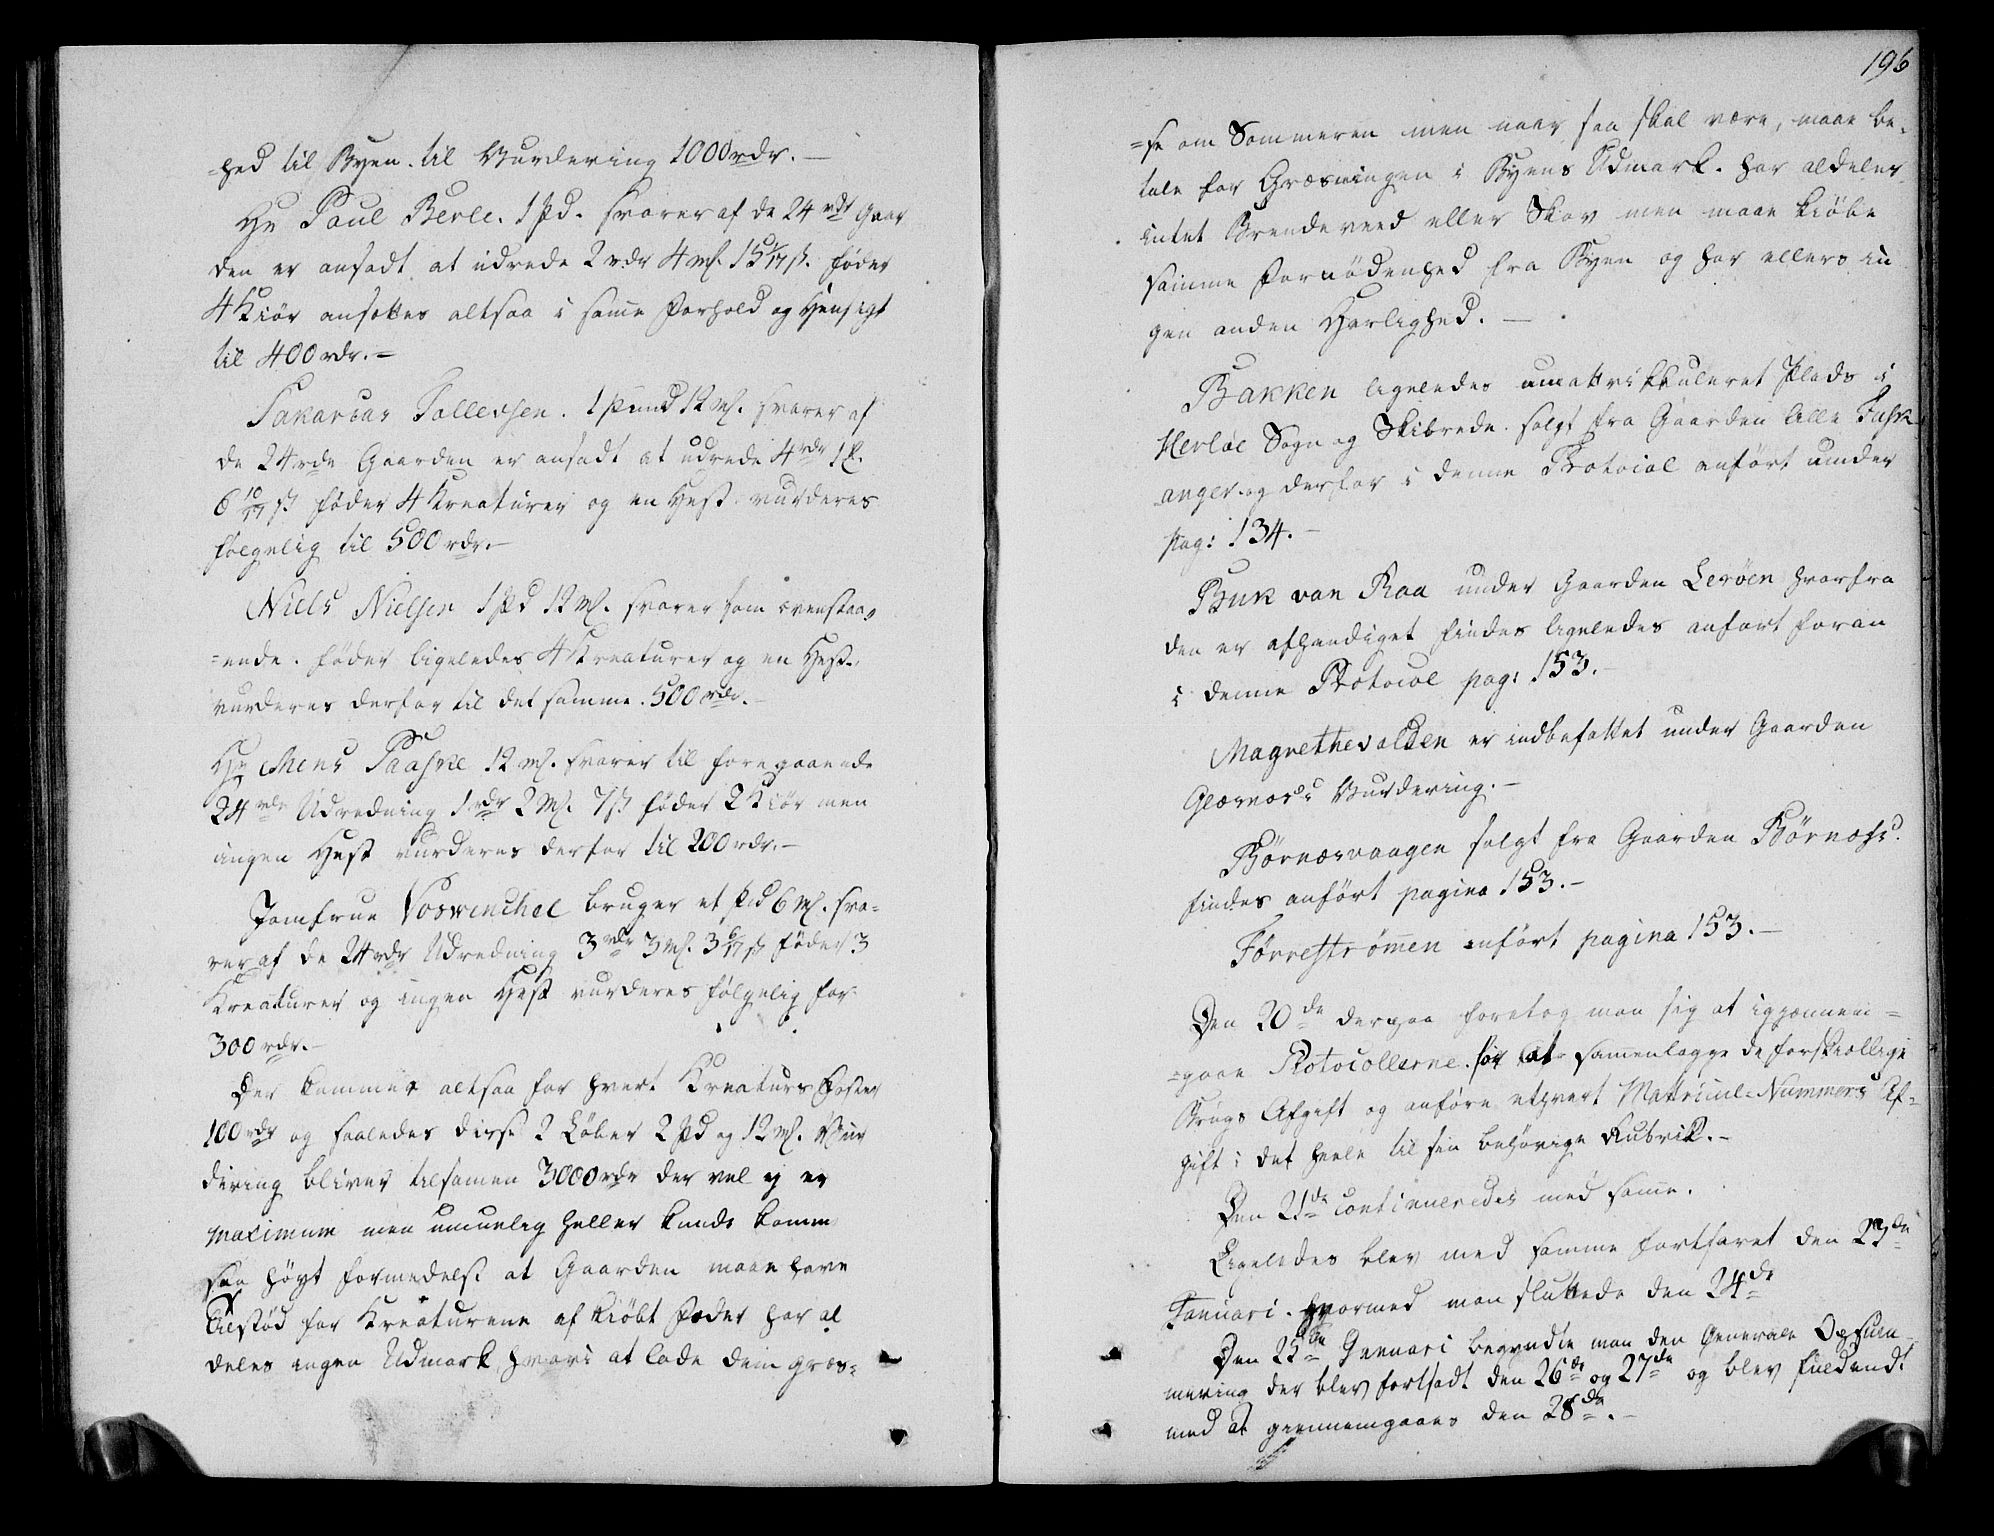 =hed til Byen. til Vurdering 1000 rdr. —
Hr Paul Berle. 1 pd. svarer af de 24 rdr Gaar
den er ansadt at udrede 2 rdr 4 mk 15 1/17 ß. føder
4 Kiør ansættes altsaa i samme Forhold og Hensigt
til 400 rdr. —
Sakarias Tollevsen. 1 pund 12 mk. svarer af
de 24 rdr Gaarden er ansadt at udrede 4 rdr 1
6 10/17 ß føder 4 Kreaturer og en Hest. vurderes
følgelig til 500 rdr. —
Niels Nielsen 1 pd 12 mk. svarer som ovenstaa,
=ende. føder ligeledes 4 Kreaturer og en Hest.
vurderes derfor til det samme. 500 rdr. —
Hr Mens Paaske 12 mk. svarer til foregaaende
24 rdr Udredning 1 rdr 2 mk. 7 ß føder 2 Kiør men
ingen Hest vurderes derfor til 200 rdr. —
Jomfrue Voswinchel bruger et pd 6 mk. sva=
rer af de 24 rdr Udredning 3 rdr 3 mk. 3 6/17 ß føder 3
Kreaturer og ingen Hest vurderes følgelig for
300 rdr. —
Der kommer altsaa for hvert Kreaturs Foster
100 rdr og saaledes disse 2 Løber 2 pd og 12 mk. Vur
dering bliver tilsamen 3000 rdr der vel ej er
maximum men umuelig heller kunde komme
saa høyt formedelst at Gaarden maae have
Tilstød for Kreaturene af kiöbt Foder har al
deles ingen Udmark hvori at lade dem græs=
196
=se om Sommeren men naar saa skal være, maae be=
tale for Græsningen i Byens Udmark. har aldeles
intet Brendeveed eller Skov men maae kiöbe
samme Fornödenhed fra Byen og har ellers in
gen anden Herlighed. —
Bakken ligeledes umattrikkuleret Plads i
Herløe Sogn og Skibrede. solgt fra Gaarden lille Fosk
anger og derfor i denne Protocol anført under
pag: 134. —
Buk van Raa under Gaarden Lerøen hvorfra
den er afhændiget findes ligeledes anført foran
i denne Protocol pag: 153. —
Magrethevolden er indbefattet under Gaarden
Glæsnæs's Vurdering. —
Børnæsvaagen solgt fra Gaarden Børnæs.
findes anført pagina 153. —
Førrestrømen anført pagina 153. —
Den 20de derpaa foretog man sig at igjennem=
=gaae Protocollerne. for at samenlægge de forskiellige
Brugs Afgift og anføre ethvert Matricul-Nummers Af=
gift i det heele til sin behørige Rubrik. —
Den 21de continueredes med same.
Ligeledes blev med samme fortfaret den 23de
Januari. hvormed man sluttede den 24de
Den 25de Januari begyndte man den Generale Opsum
mering der blev fortsadt den 26de og 27de og blev fuldendt
med at giennemgaaes den 28de. —